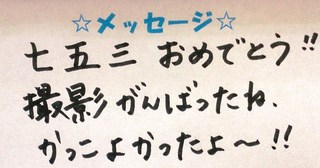 ☆メッセージ☆
七五三 おめでとう!!
撮影がんばったね、
かっこよかったよ〜!!